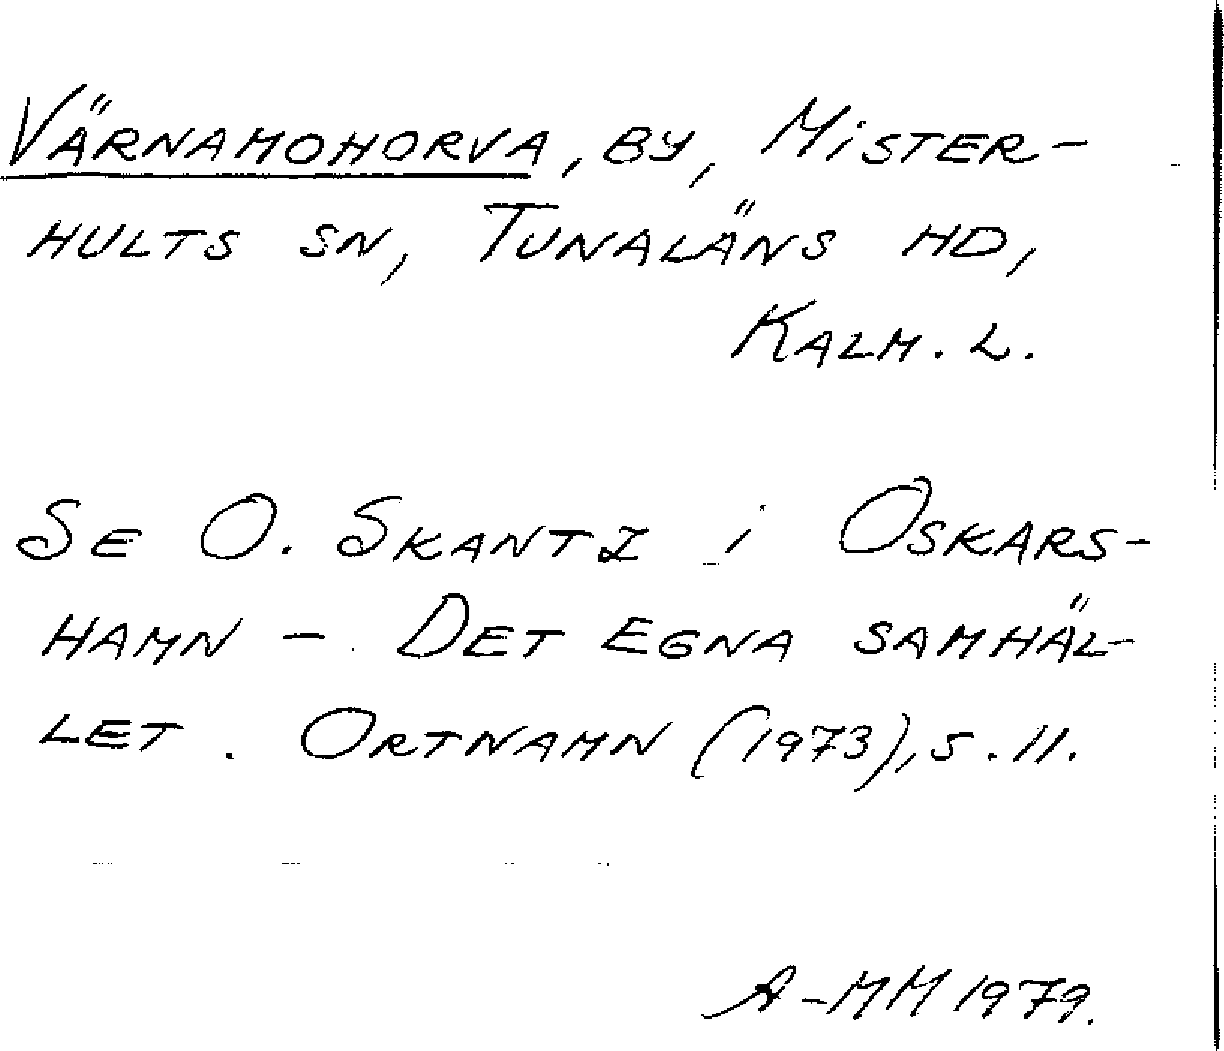 VÄRNAMOHORVA, BY, MISTER-
HULTS SN, TUNALÄNS HD,
KALM. L.
SE O. SKANTZ i OSKARS-
HAMN - DET EGNA SAMHÄL-
LET. ORTNAMN (1973), S. 11.
A-MM 1979.